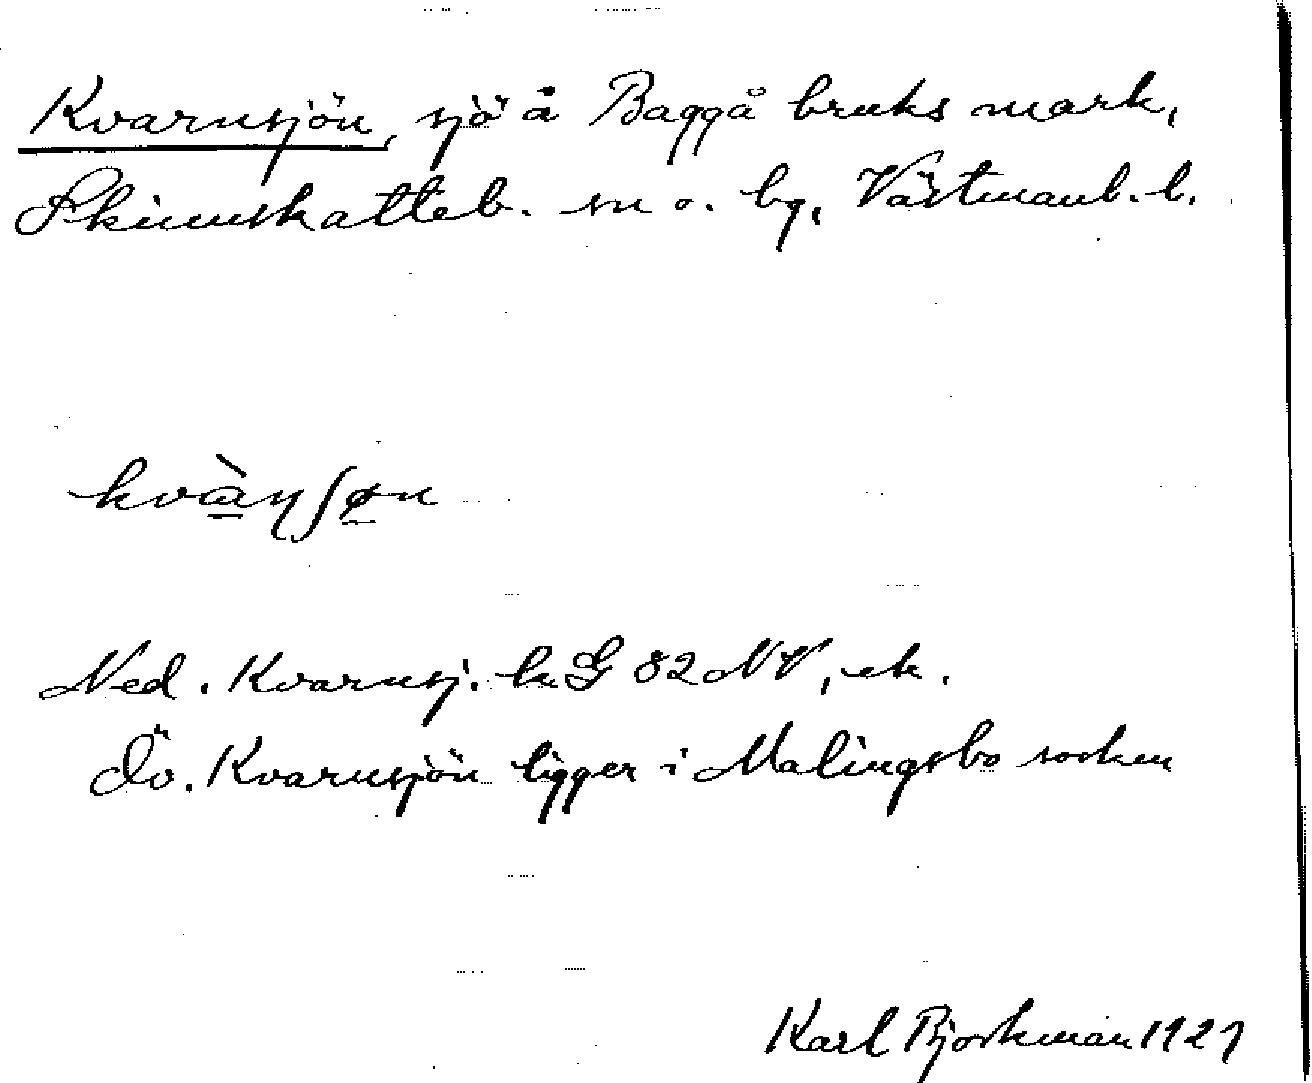 Kvarnsjön, sjö å Baggå bruks mark,
Skinnskatteb. sn o. bg, Västmanl. l.
kvàŋʃøn
Ned. Kvarnsj. k. G 82 NV, ek.
Öv. Kvarnsjön ligger i Malingsbo socken
Karl Björkman 1927